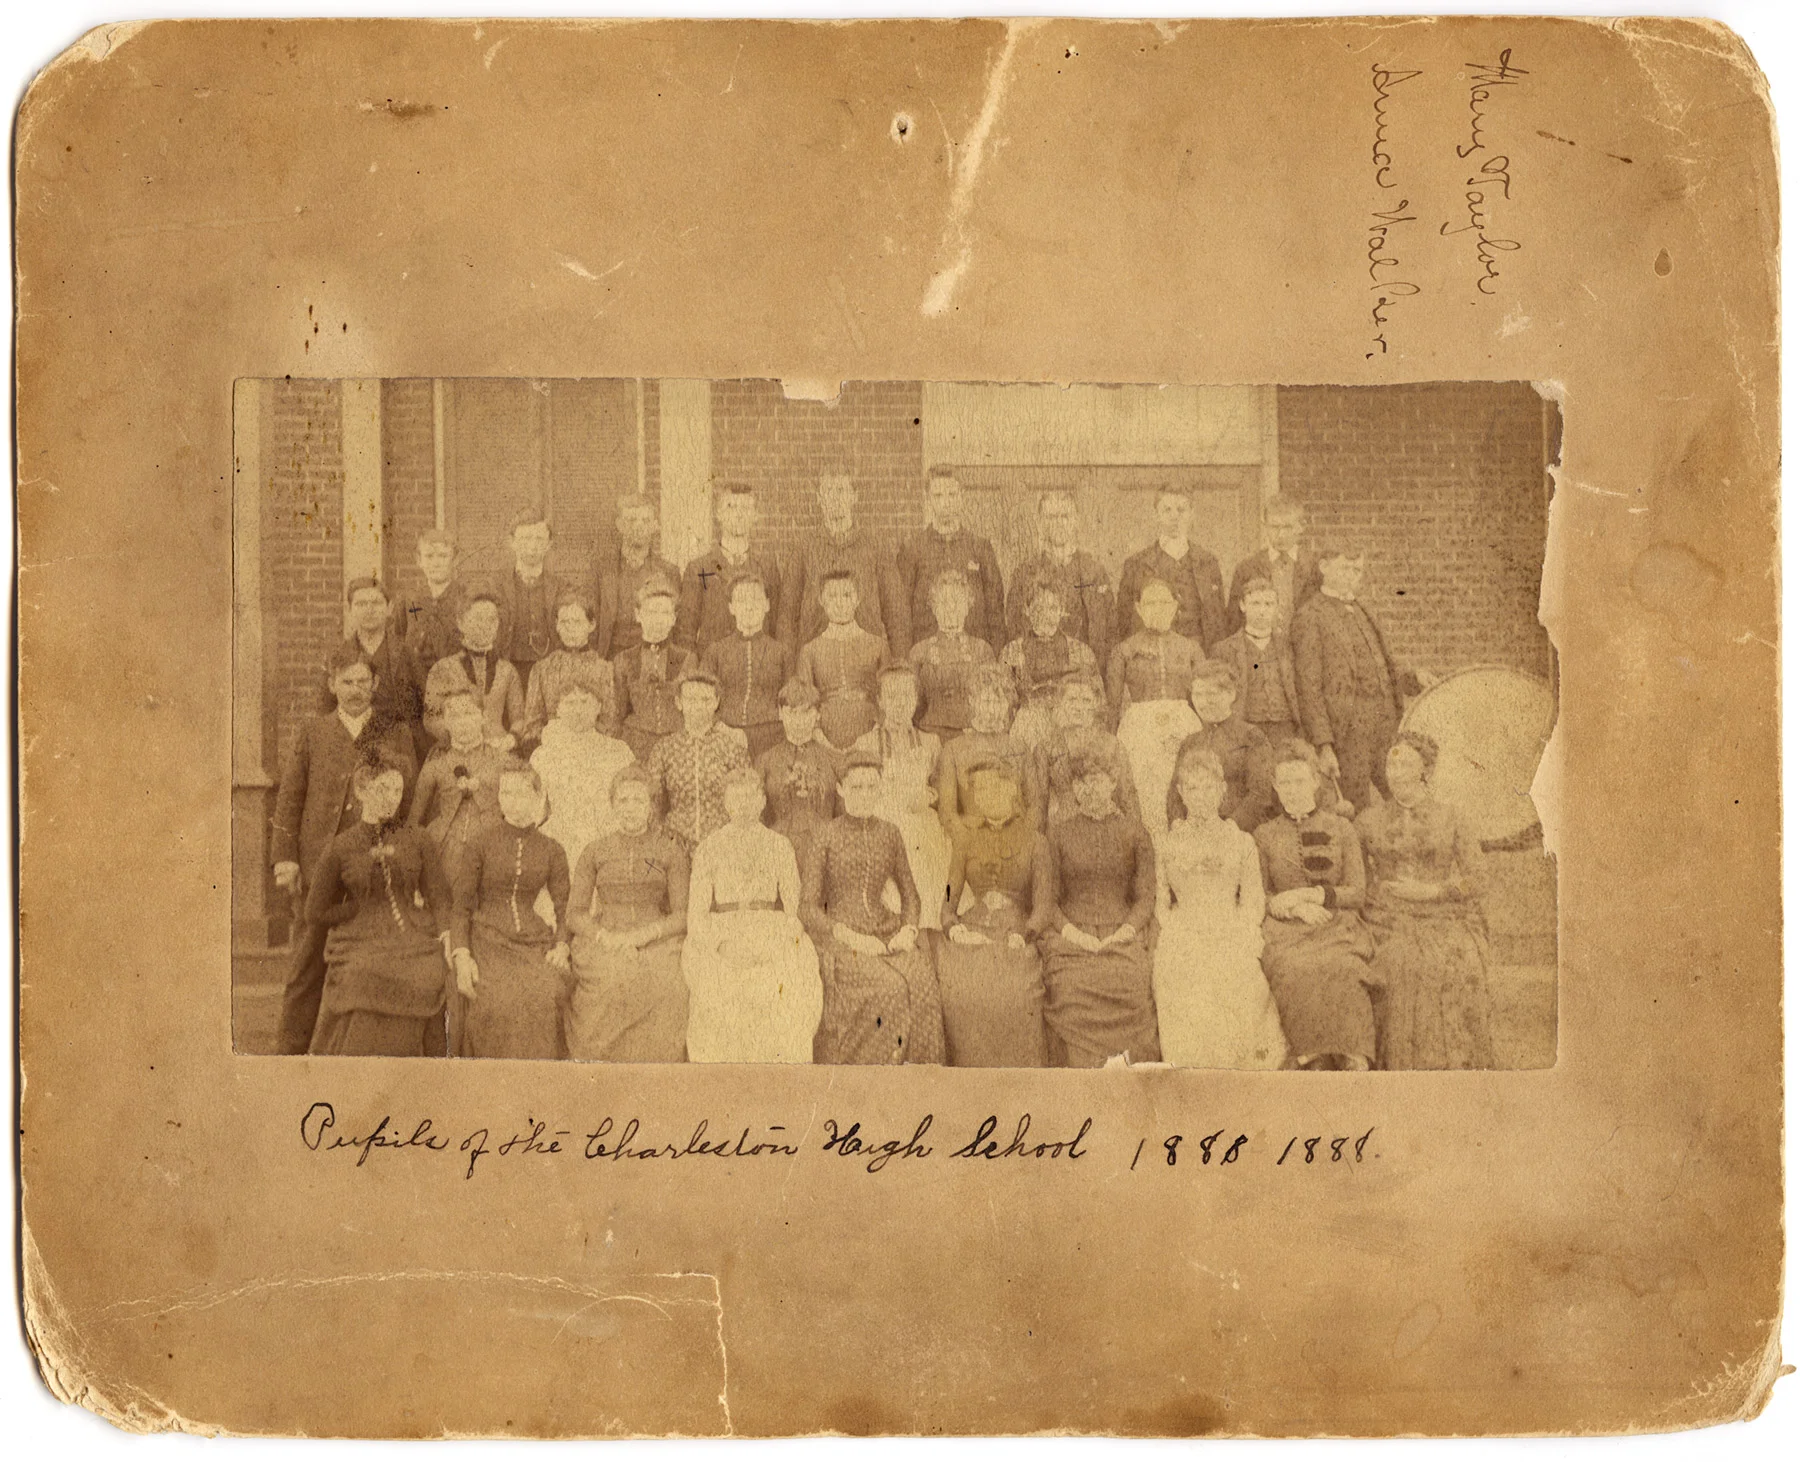 Mary Taylor.
Anna Walker.
Pupils of the Charleston High School 1888 1888.